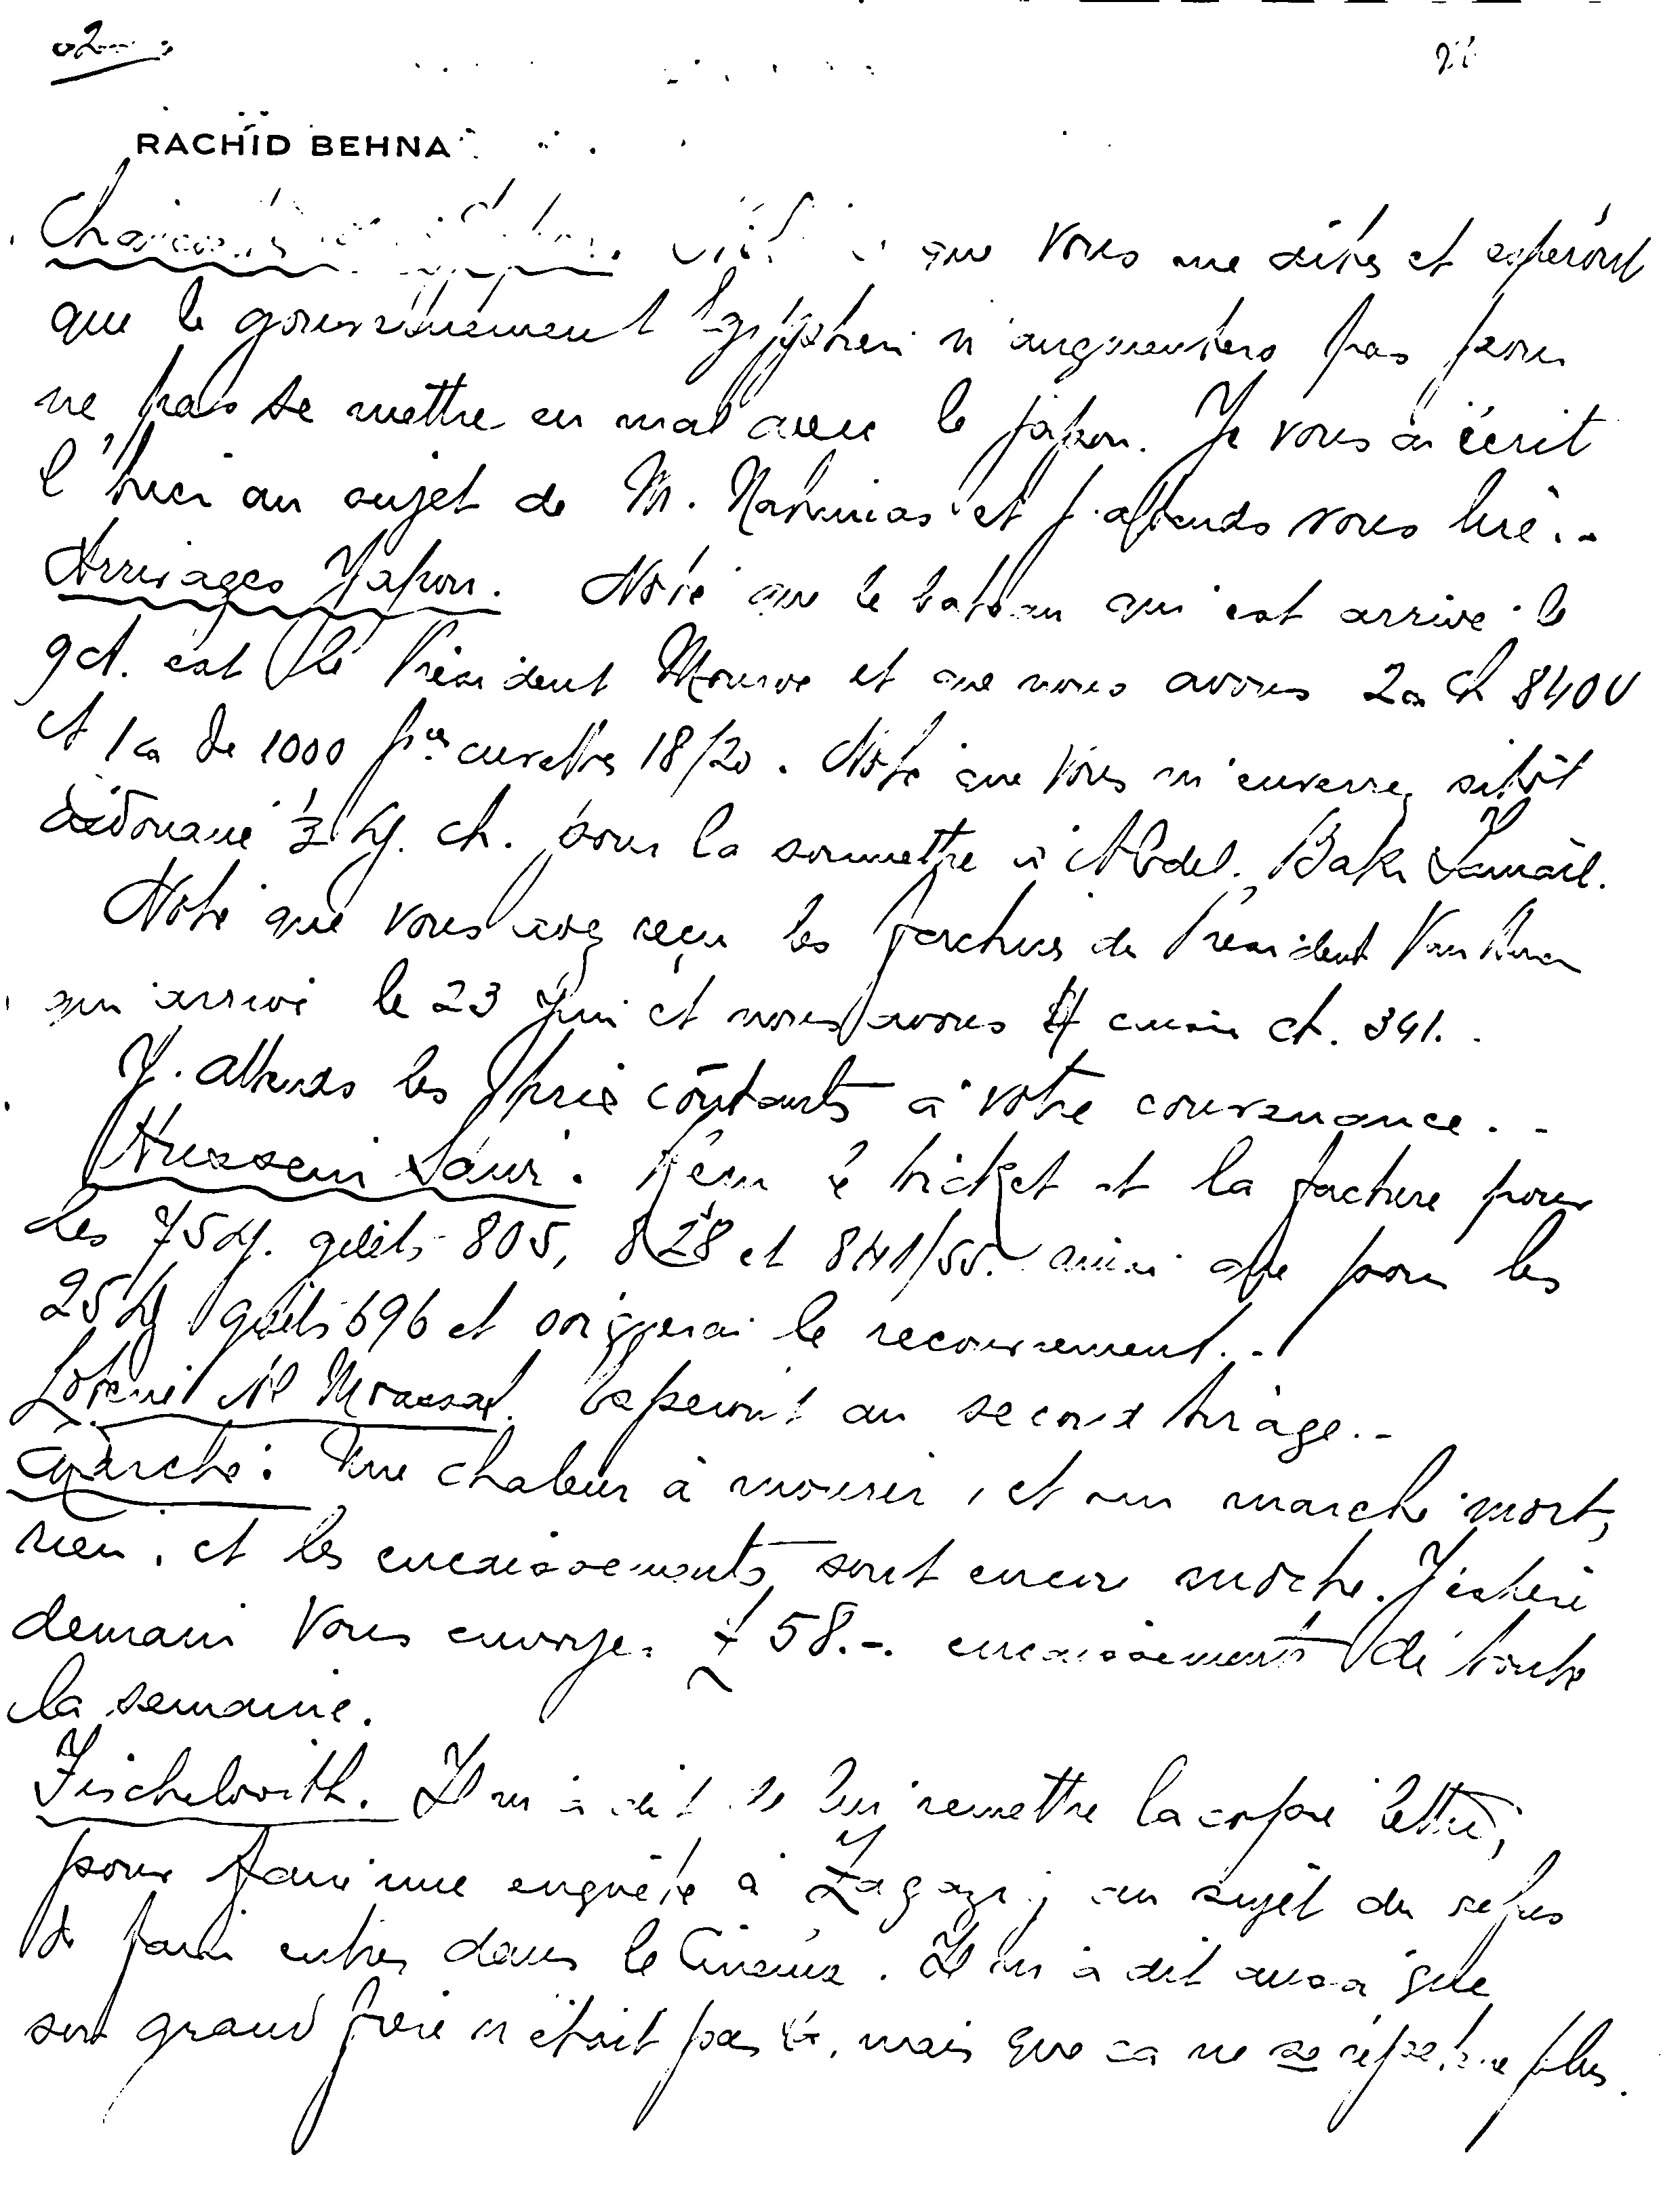 RACHID BEHNA
que vous me dites et espérons
que le gouvernement Egyptien n'augmentera pas pour
ne pas se mettre en mal avec le japon. Je vous ai écrit
au sujet de M. Nahmias et j'attends vous lire..
Arrivages Japon. Noté que le bateau qui est arrivé le
9 ct. est le Président Monroe et que nous avons 2 cs ch 8400
et 1 cs de 1000 pces cuvettes 18/20. Noté que vous m'enverrez sitôt
dédouané ½ ch. pour la soumettre à Abdel Baki Ismaïl.
Noté que vous avez reçu les factures du Président Van Buren
qui arrive le 23 Juin et nous avons ch. 341.
J'attends les prix coûtants à votre convenance..
Hussein Reçu le ticket et la facture pour
les 75 gilets 805, 828 et 841/55. ainsi que pour les
25 gilets 696 et soignerai le recouvrement..
Loterie Al Moassat. Espérons au second tirage..
Marché: Une chaleur à mourir, et un marché mort,
rien, et les encaissements sont encore moche. J'espère
demain vous envoyer £ 58.-. encaissements de toute
la semaine.
Il m'a dit de lui remettre la copie lettre,
pour faire une enquête à Zagazig au sujet du refus
de faire entrer dans le Cinéma. Il m'a dit aussi que
son grand frère n'était pas là, mais que ça ne se répétera plus.